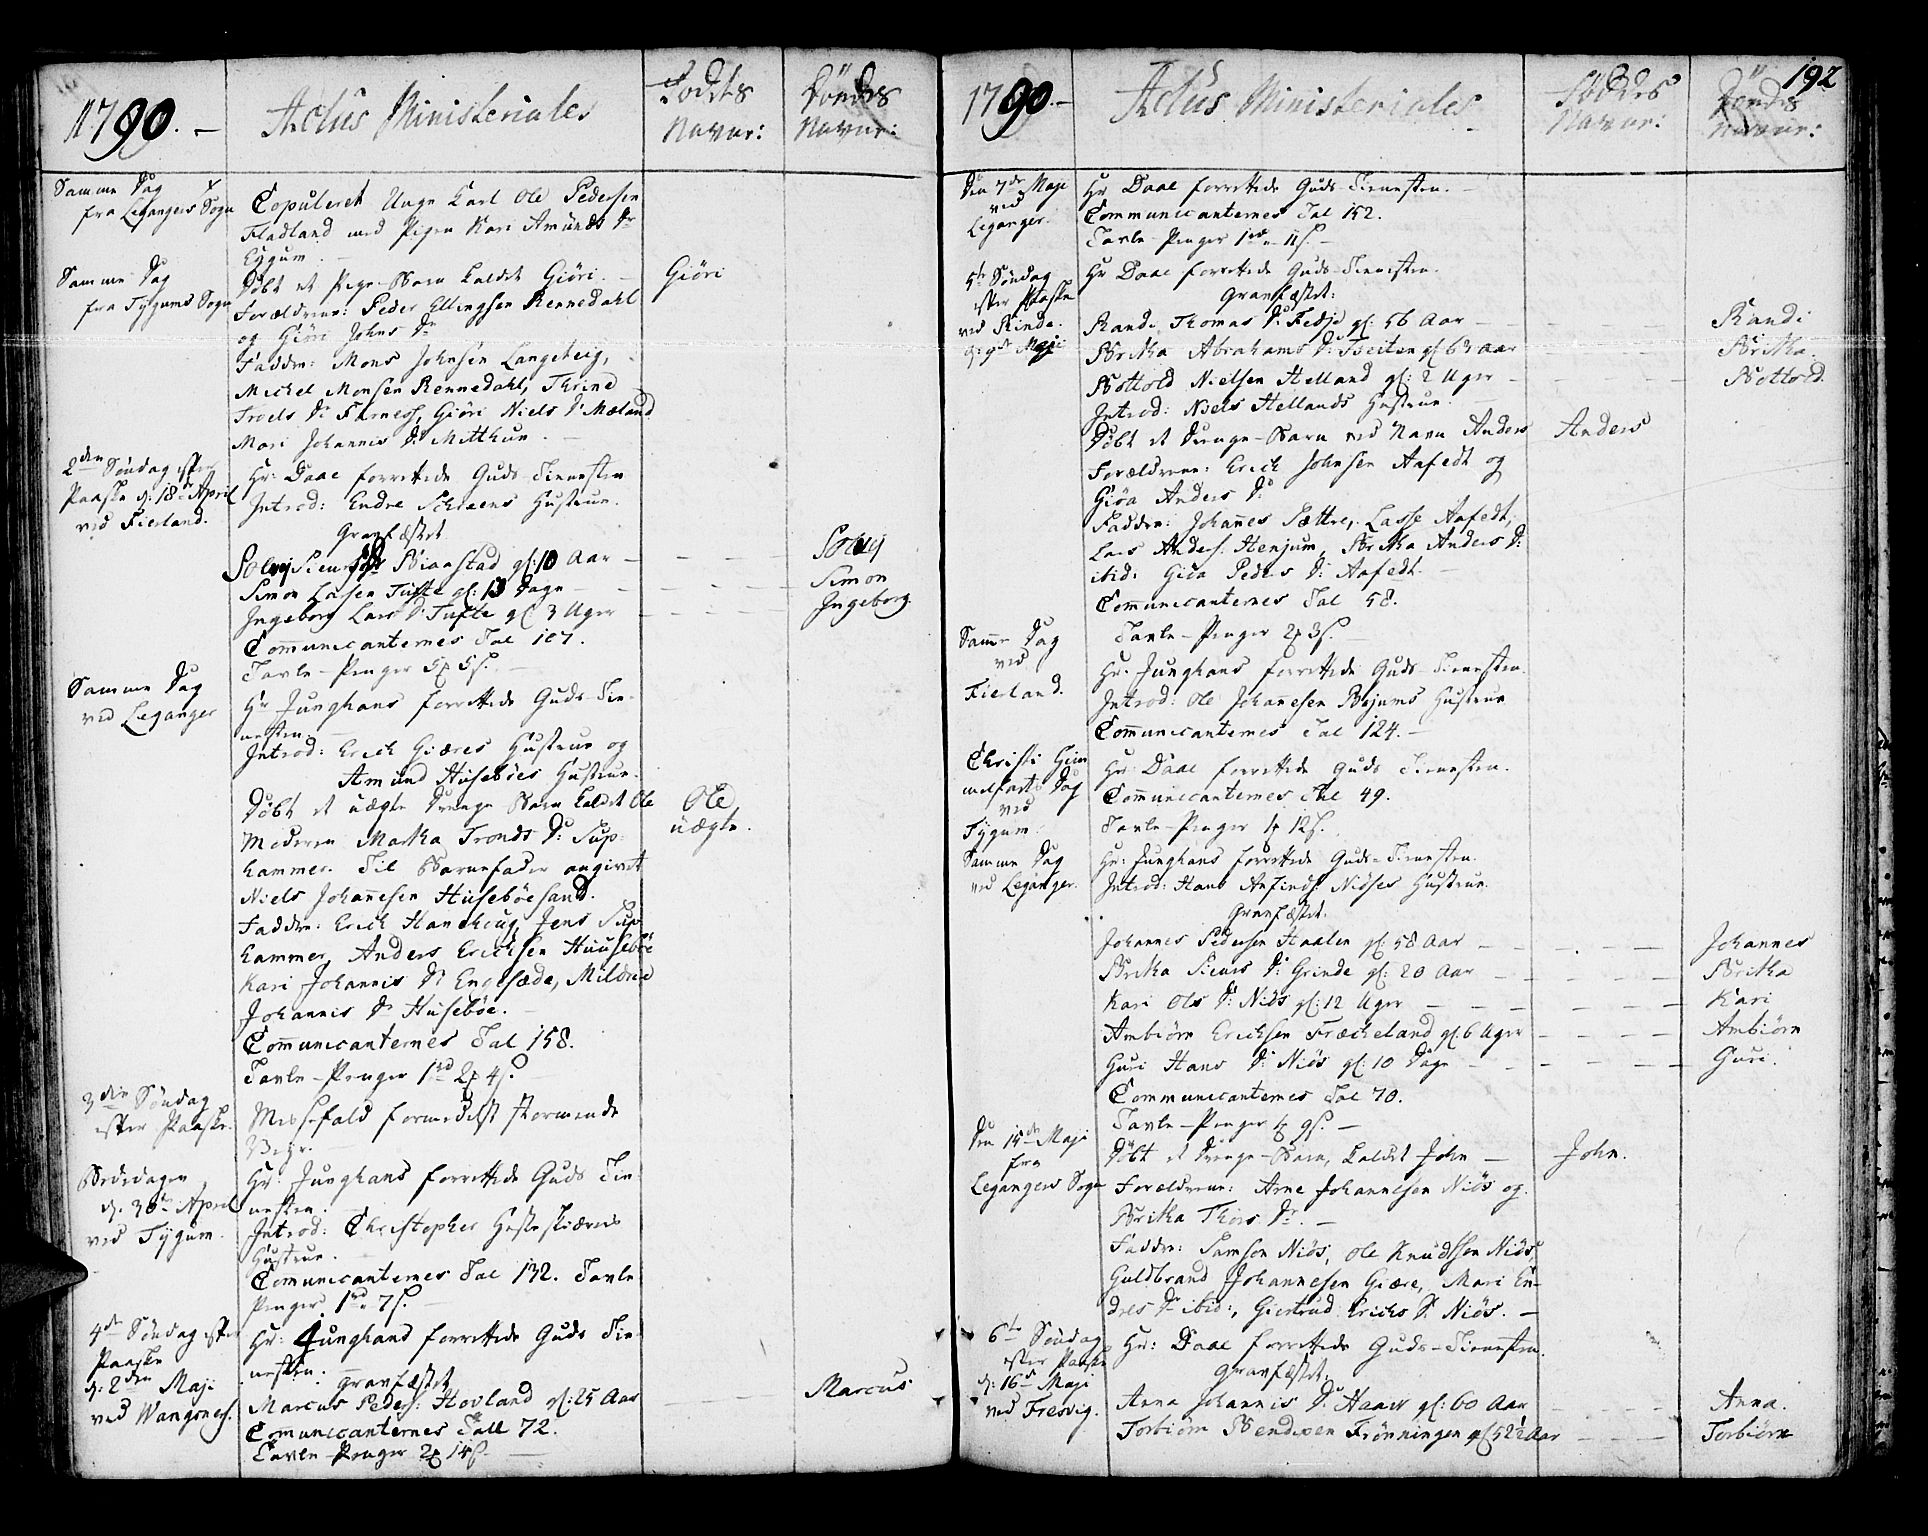 1790. —
Actus Ministeriales
Fødtes Navne:
Dødes Navne:
Samme Dag
fra Legangers Sogn
Copuleret Unge Karl Ole Pedersen
Fladland med Pigen Kari Amunds Dr
Eggum.
Samme Dag
fra Tygums Sogn
Døbt et Pige-Barn kaldet Giøri. — Giøri
Forældrene: Peder Ellingsen Rennedahl
og Giøri Johns Dr
Faddre: Mons Johnsen Langeteig,
Michel Monsen Rennedahl, Thrine
Troels Dr Farness, Giøri Niels Dr Mæland
Mari Johannis Dr Mitthun. —
2den Søndag efter
Paaske d: 18de April
ved Fierland.
Hr: Daae forrettede Guds-Tienesten
Introd: Endre Schraens Hustrue.
Gravfæstet
Solvi Siurs Dr Biaastad gl: 10 Aar — Solvi
Simon Larsen Tufte gl: 13 Dage — Simon
Ingeborg Lars Dr Tufte gl 3 Uger — Ingeborg
Communicanternes Tal 107.
Tavle-Penger 5 5s.
Samme Dag
ved Leganger
Hr Junghans forrettede Guds-Tie-
nesten.
Introd: Erich Giæres Hustrue og
Amund Husebøes Hustrue.
Døbt et uægte Drenge Barn kaldet Ole
Ole
uægte.
Moderen Martha Tronds Dr Sup-
hammer. Til Barnefader angivet
Niels Johannesen Husebøesand.
Faddre: Erich Hanekoug, Jens Sup-
hammer, Anders Erichsen Huusebøe
Kari Johannis Dr Engesæde, Mildrid
Johannis Dr Husebøe. —
Communicanternes Tal 158.
Tavle-Penger 1rd 2 4s.
3die Søndag
efter Paaske.
Messefald formedelst stormende
Vejr.
Bededagen
d. 30te April
ved Tygum.
Hr: Junghans forrettede Guds Tie-
nesten.
Introd: Christopher Hesteskiærs
Hustrue.
Communicanternes Tal 132. Tavle
Penger 1rd 7s.
4de Søndag efter
Paaske
d: 2den Maji
ved Wangsnes.
Hr: Junghans forrettede Guds Tie-
nesten. Gravfæstet
Marcus Peders: Hovland gl: 25 Aar — Marcus
Communicanternes Tall 72.
Tavle-Penger 2 14s. —
192
1790. —
Actus Ministeriales
Fødtes Navne:
Dødes Navne:
Den 7de Maji
ved
Leganger.
Hr Daae forrettede Guds Tienesten. —
Communicanternes Tal 152.
Tavle-Penger 1rd 11s. —
5te Søndag
efter Paaske
ved Rinde.
d: 9de Maji
Hr Daae forrettede Guds-Tienesten.
Gravfæstet:
Randi Thomas Dr Fedje gl: 56 Aar — Randi
Britha Abrahams Dr Tveiten gl 63 Aar — Britha.
Bottold Nielsen Helland gl: 2 Uger — Bottold.
Introd: Niels Hellands Hustrue. —
Døbt et Drenge-Barn ved Navn Anders
Anders
Forældrene: Erich Johnsen Aafedt og
Giøa Anders Dr
Faddre: Johannes Sættre, Lasse Aafedt,
Lars Anders: Henjum, Britha Anders Dr
ibid: Giøa Peders Dr Aafedt. —
Communicanternes Tal 58.
Tavle-Penger 2 3s. —
Samme Dag
ved
Fierland.
Hr. Junghans forrettede Guds-Tienesten
Introd: Ole Johannesen Bojums Hustrue
Communicanternes Tal 124. —
Christi Him-
melfarts Dag
ved
Tygum.
Hr: Daae forrettede Guds Tienesten.
Communicanternes Tal 49.
Tavle-Penger 4 12s.
Samme Dag
ved Leganger.
Hr: Junghans forrettede Guds-Tienesten.
Introd: Hans Anfinds: Niøses Hustrue.
Gravfæstet.
Johannes Pedersen Haalen gl: 58 Aar — Johannes
Britha Siurs Dr Grinde gl: 20 Aar — Britha
Kari Ols Dr Niøs gl: 12 Uger — Kari
Ambiørn Erichsen Fræcheland gl: 6 Uger — Ambiørn
Guri Hans Dr Niøs gl: 10 Dage — Guri.
Communicanternes Tal 70.
Tavle-Penger 4 9s. —
Den 15de Maji
fra
Legangers Sogn
Døbt et Drenge-Barn, kaldet John — John.
Forældrene: Arne Johannesen Niøs og
Britha Thors Dr. —
Faddre: Samson Niøs, Ole Knudsson Niøs,
Guldbrand Johannesen Giære, Mari En-
dres Dr ibid:, Giertrud Erichs Dr Niøs. —
6te Søndag
efter Paaske
d: 16de Maji
ved Fresvig.
Hr: Daae forrettede Guds-Tienesten.
Gravfæstet.
Anna Johannis Dr Haaw gl: 60 Aar — Anna.
Torbiørn Bendixen Frønningen gl 52½ Aar — Torbiørn